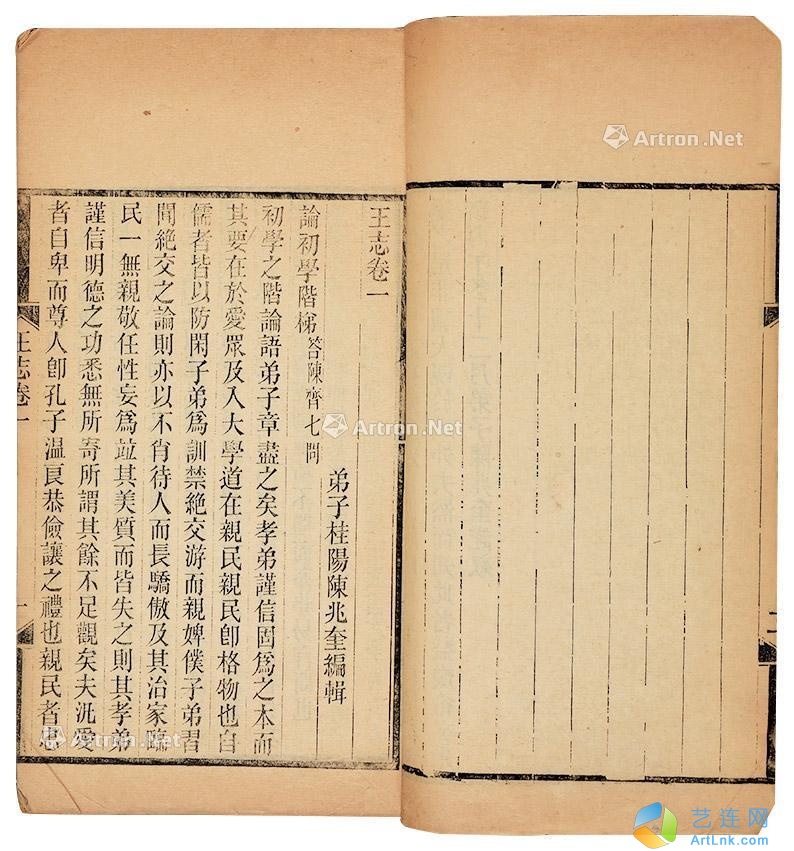 王志卷一
弟子桂陽陳兆奎編輯
論初學階梯答陳齊七問
初學之階論語弟子章盡之矣孝弟謹信固爲之本而
其要在於愛眾及入大學道在親民親民卽格物也自
儒者皆以防閑子弟爲訓禁絕交游而親婢僕子弟習
聞絕交之論則亦以不肖待人而長驕傲及其治家臨
民一無親敬任性妄爲竝其美質而皆失之則其孝弟
謹信明德之功悉無所寄所謂其餘不足觀矣夫汎愛
者自卑而尊人卽孔子溫良恭儉讓之禮也親民者忠
王志卷一
一
二
Artron.Net
Artron.Net
Artron.Net
Artron.Net
艺连网
ArtLnk.com